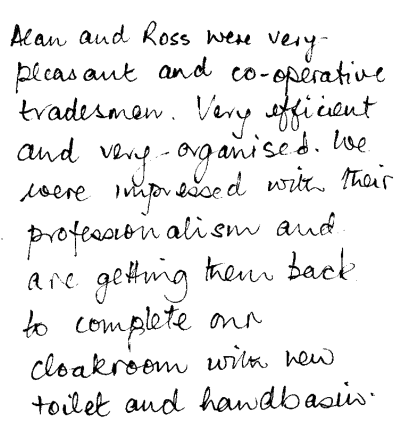 Alan and Ross were very
pleasant and co-operative
tradesmen. Very efficient
and very organised. We
were impressed with their
professionalism and
are getting them back
to complete our
cloakroom with new
toilet and handbasin.